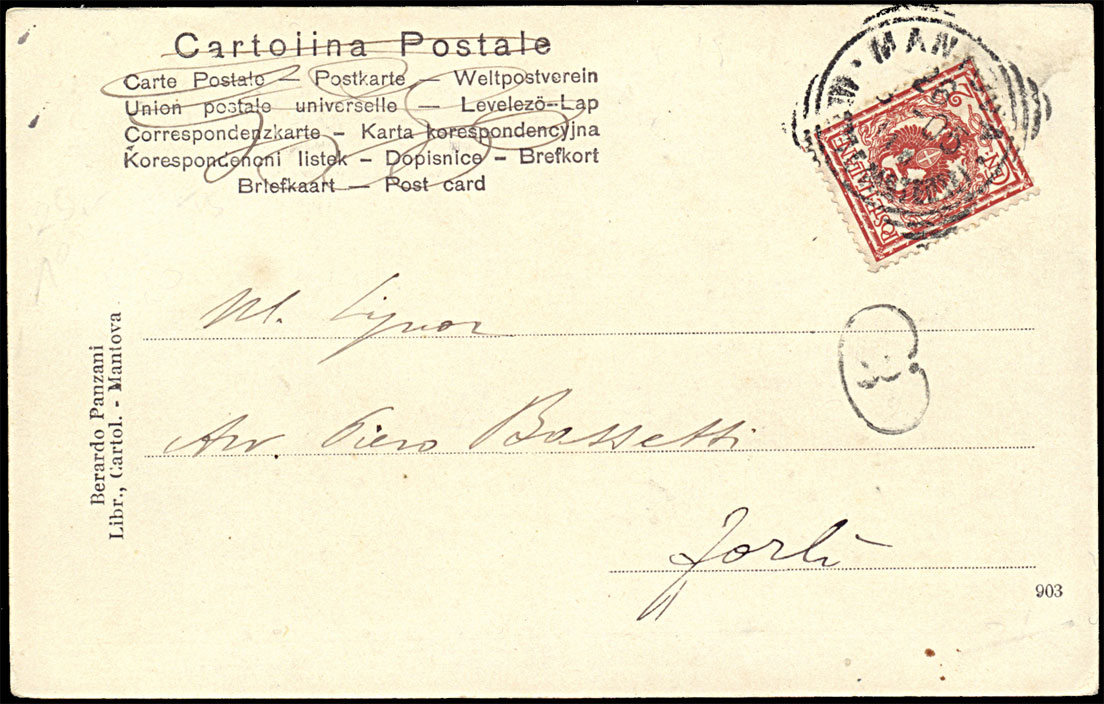 Cartolina Postale
Carte Postale – Postkarte – Weltpostverein
Union postale universelle – Levelező-Lap
Correspondenzkarte – Karta korespondencyjna
Korespondencni listek – Dopisnice – Brefkort
Briefkaart – Post card
POSTE ITALIANE
Al. Signor
Avv. Piero Bassetti
Forlì
Berardo Panzani
Libr., Cartol. - Mantova
903